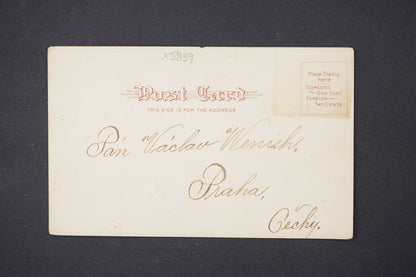 X5839
Post Card
THIS SIDE IS FOR THE ADDRESS
Place Stamp
here
DOMESTIC
ONE CENT
FOREIGN
TWO CENTS
Pán Václav Wenish,
Praha,
Čechy.